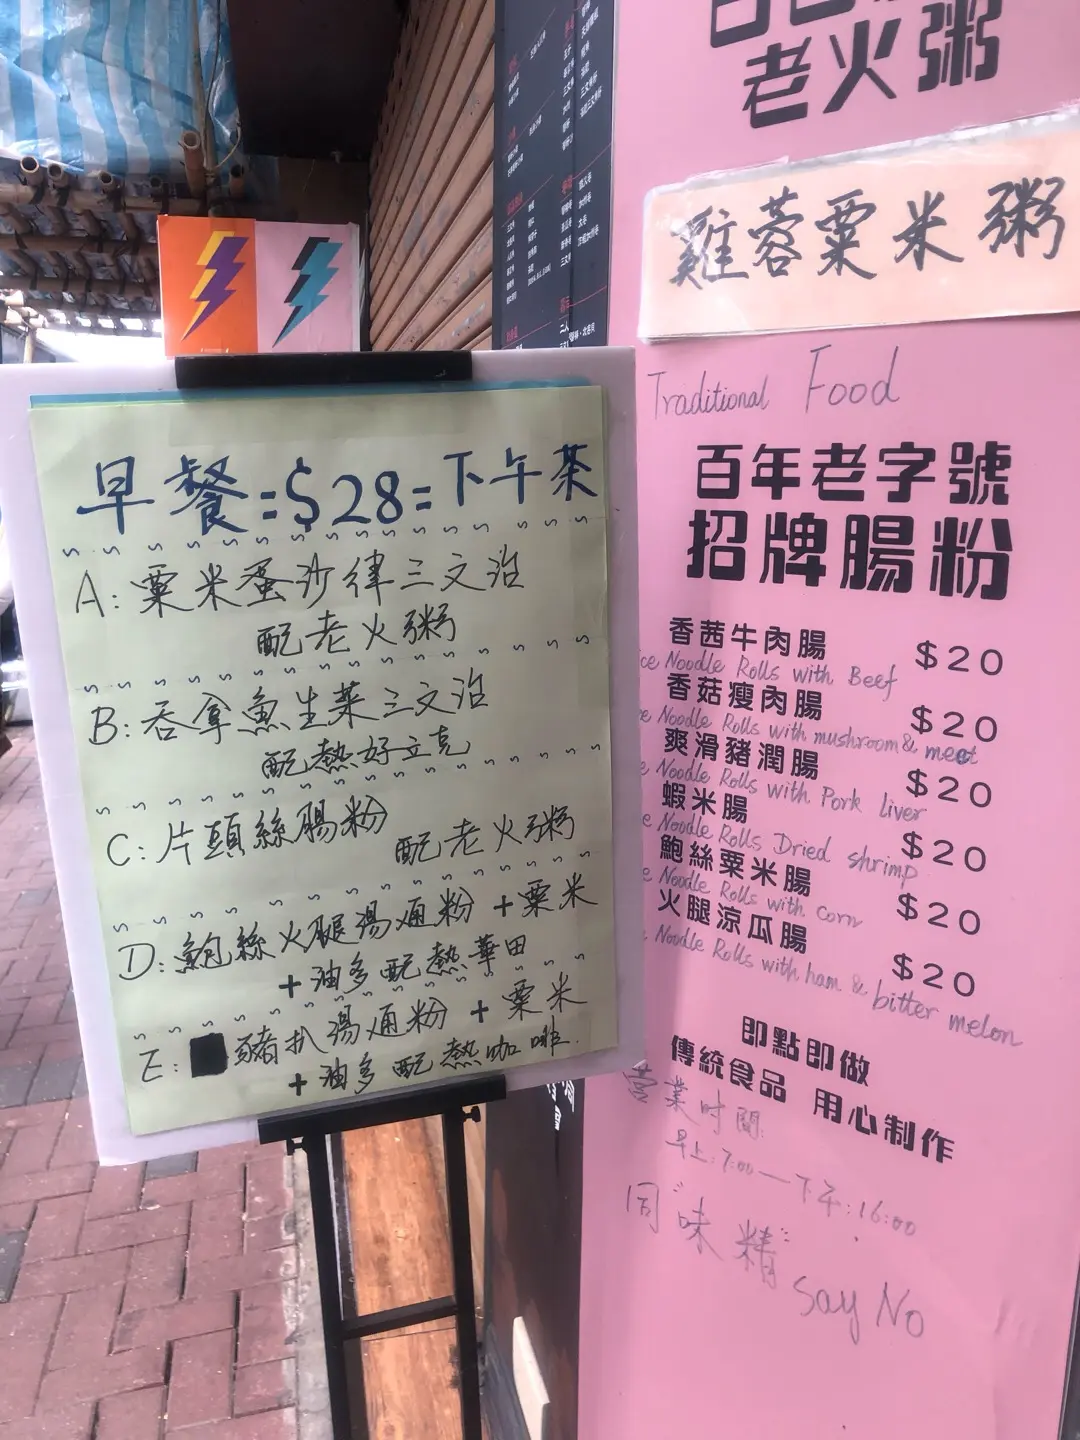 早餐=$28=下午茶
A:粟米蛋沙律三文治
配老火粥
B:吞拿魚生菜三文治
配熱好立克
C:片頭絲腸粉
配老火粥
D:鮑絲火腿湯通粉+粟米
+油多配熱華田
E:豬扒湯通粉+粟米
+油多配熱咖啡.
老火粥
雞蓉粟米粥
Traditional Food
百年老字號
招牌腸粉
香茜牛肉腸 $20
ce Noodle Rolls with Beef
香菇瘦肉腸 $20
e Noodle Rolls with mushroom & meat
爽滑豬潤腸 $20
e Noodle Rolls with Pork liver
蝦米腸 $20
e Noodle Rolls Dried shrimp
鮑絲粟米腸 $20
e Noodle Rolls with corn
火腿涼瓜腸 $20
Noodle Rolls with ham & bitter melon
即點即做
傳統食品 用心制作
營業時間:
早上:7:00—下午:16:00
同"味精"
Say No